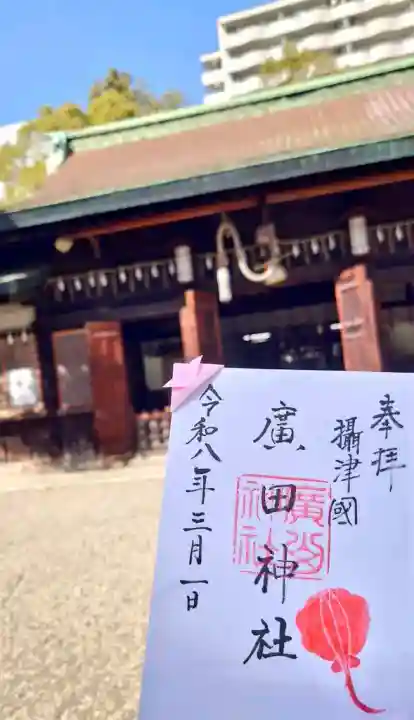 奉拝
攝津國
廣田神社
令和八年三月一日